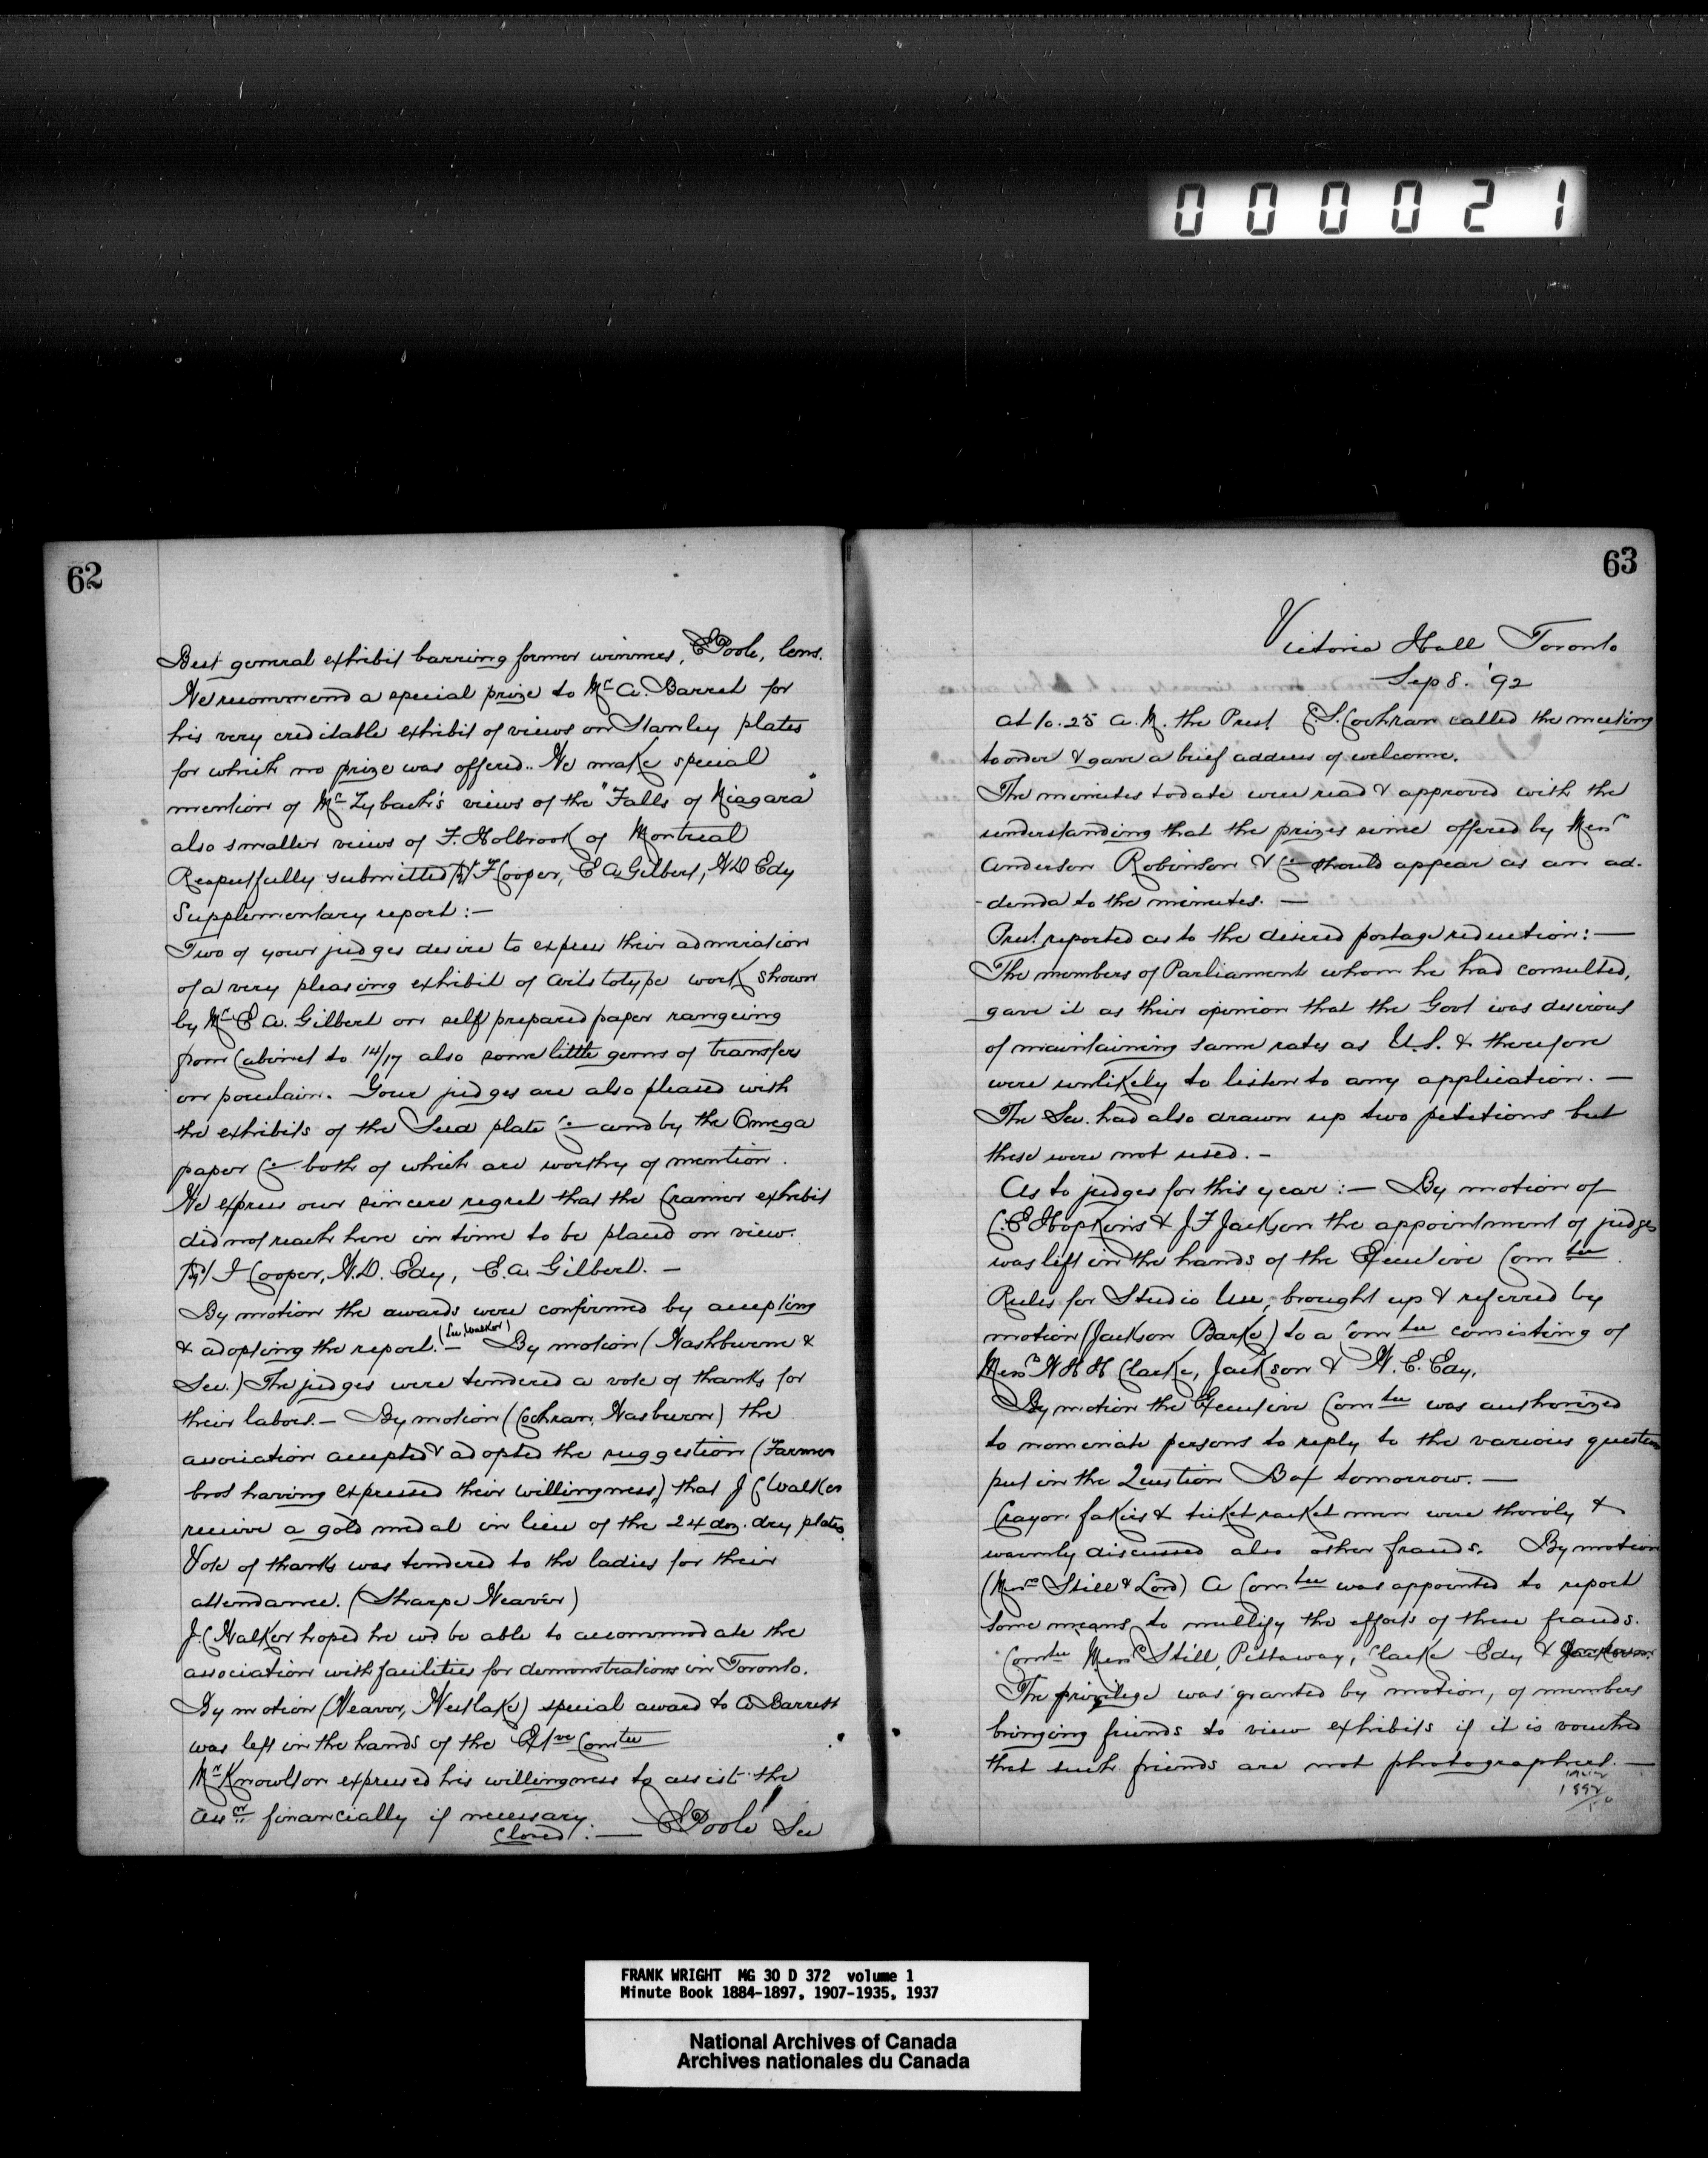 000021
62
Best general exhibit barring former winners, E Poole, lens.
We recommend a special prize to Mr A. Barrett for
his very creditable exhibit of views on Stanley plates
for which no prize was offered.. We make special
mention of Mr Zybach's views of the "Falls of Niagara"
also smaller views of F. Holbrook of Montreal
Respectfully submitted J F Cooper, E A Gilbert, W D Edy
Supplementary report:—
Two of your judges desire to express their admiration
of a very pleasing exhibit of aristotype work shown
by Mr E A. Gilbert on self prepared paper rangeing
from Cabinet to 14/17 also some little gems of transfers
on porcelain. Your judges are also pleased with
the exhibits of the Seed plate Co and by the Omega
paper Co both of which are worthy of mention.
We express our sincere regret that the Cramer exhibit
did not reach here in time to be placed on view.
J Cooper, W.D. Edy, E.A. Gilbert. —
By motion the awards were confirmed by accepting
& adopting the report.— (Sec, Walker) By motion (Washburne &
Sec.) The judges were tendered a vote of thanks for
their labors.— By motion (Cochran, Wasburn) the
association accepted & adopted the suggestion (Farmer
bros having expressed their willingness) that J C Walker
receive a gold medal in lieu of the 24 doz. dry plates.
Vote of thanks was tendered to the ladies for their
attendance. (Sharpe Weaver)
J.C Walker hoped he wd be able to accommodate the
association with facilities for demonstrations in Toronto.
By motion (Weaver, Westlake) special award to A Barrett
was left in the hands of the Exve Comtee
Mr Knowlton expressed his willingness to assist the
Assn financially if necessary.
Closed:— E Poole Sec
63
Victoria Hall Toronto
Sep 8. '92
At 10.25 A.M. the Prest C S. Cochran called the meeting
to order & gave a brief address of welcome.
The minutes to date were read & approved with the
understanding that the prizes since offered by Messrs
Anderson Robinson & Co should appear as an ad-
-denda to the minutes. —
Prest reported as to the desired postage reduction:—
The members of Parliament whom he had consulted,
gave it as their opinion that the Govt was desirous
of maintaining same rates as U.S. & therefore
were unlikely to listen to any application. —
The Sec. had also drawn up two petitions but
these were not used. —
As to judges for this year:— By motion of
C.E Hopkins & J F Jackson the appointment of judges
was left in the hands of the Executive Comtee.
Rules for Studio Use, brought up & referred by
motion (Jackson Barke) to a Comtee consisting of
Messrs W H H Clarke, Jackson & W. E. Edy.
By motion the Executive Comtee was authorized
to nominate persons to reply to the various question
put in the Question Box tomorrow. —
Crayon fakirs & ticket racket men were thoroly &
warmly discussed also other frauds. By motion
(Messrs Still & Lord) A Comtee was appointed to report
some means to nullify the efforts of these frauds.
Comtee Messrs Still, Pittaway, Clarke Edy & Jackson.
The privilege was granted by motion, of members
bringing friends to view exhibits if it is vouched
that such friends are not photographers. —
1892
FRANK WRIGHT MG 30 D 372 volume 1
Minute Book 1884-1897, 1907-1935, 1937
National Archives of Canada
Archives nationales du Canada